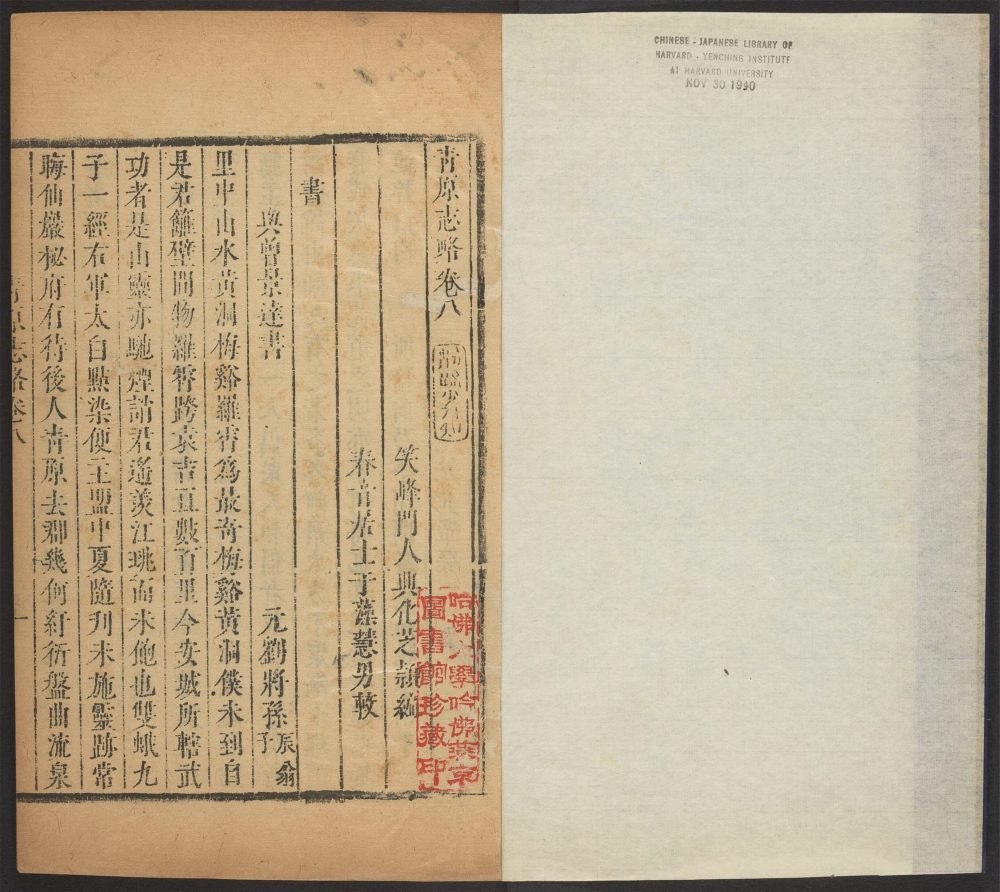 CHINESE - JAPANESE LIBRARY OF
HARVARD - YENCHING INSTITUTE
AT HARVARD UNIVERSITY
NOV 30 1940
青原志略卷八
笑峰門人興化芝穎編
春青居士于藻慧男較
哈佛大學哈佛燕京
圖書館珍藏印
書
與曾景達書 元劉將孫辰翁子
里中山水黃洞梅谿羅霄爲最奇梅谿黃洞僕未到自
是君籬壁間物羅霄跨袁吉亘數百里今安城所轄武
功者是山靈亦馳煙請君遙羨江珧而未飽也雙蛾九
子一經右軍太白點染便主盟中夏隨刋未施靈跡常
晦仙巖秘府有待後人青原去郡幾何紆衍盤曲流泉
青原志略卷八 一